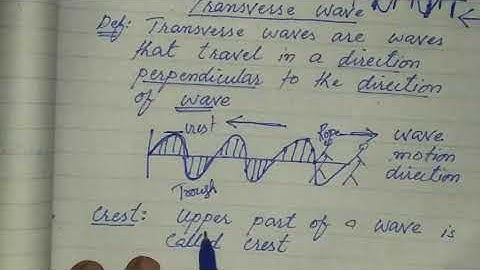 Transverse wave
Def: Transverse waves are waves
that travel in a direction
perpendicular to the direction
of wave
crest
Rope
wave
motion
direction
Trough
Crest: Upper part of a wave is
called crest